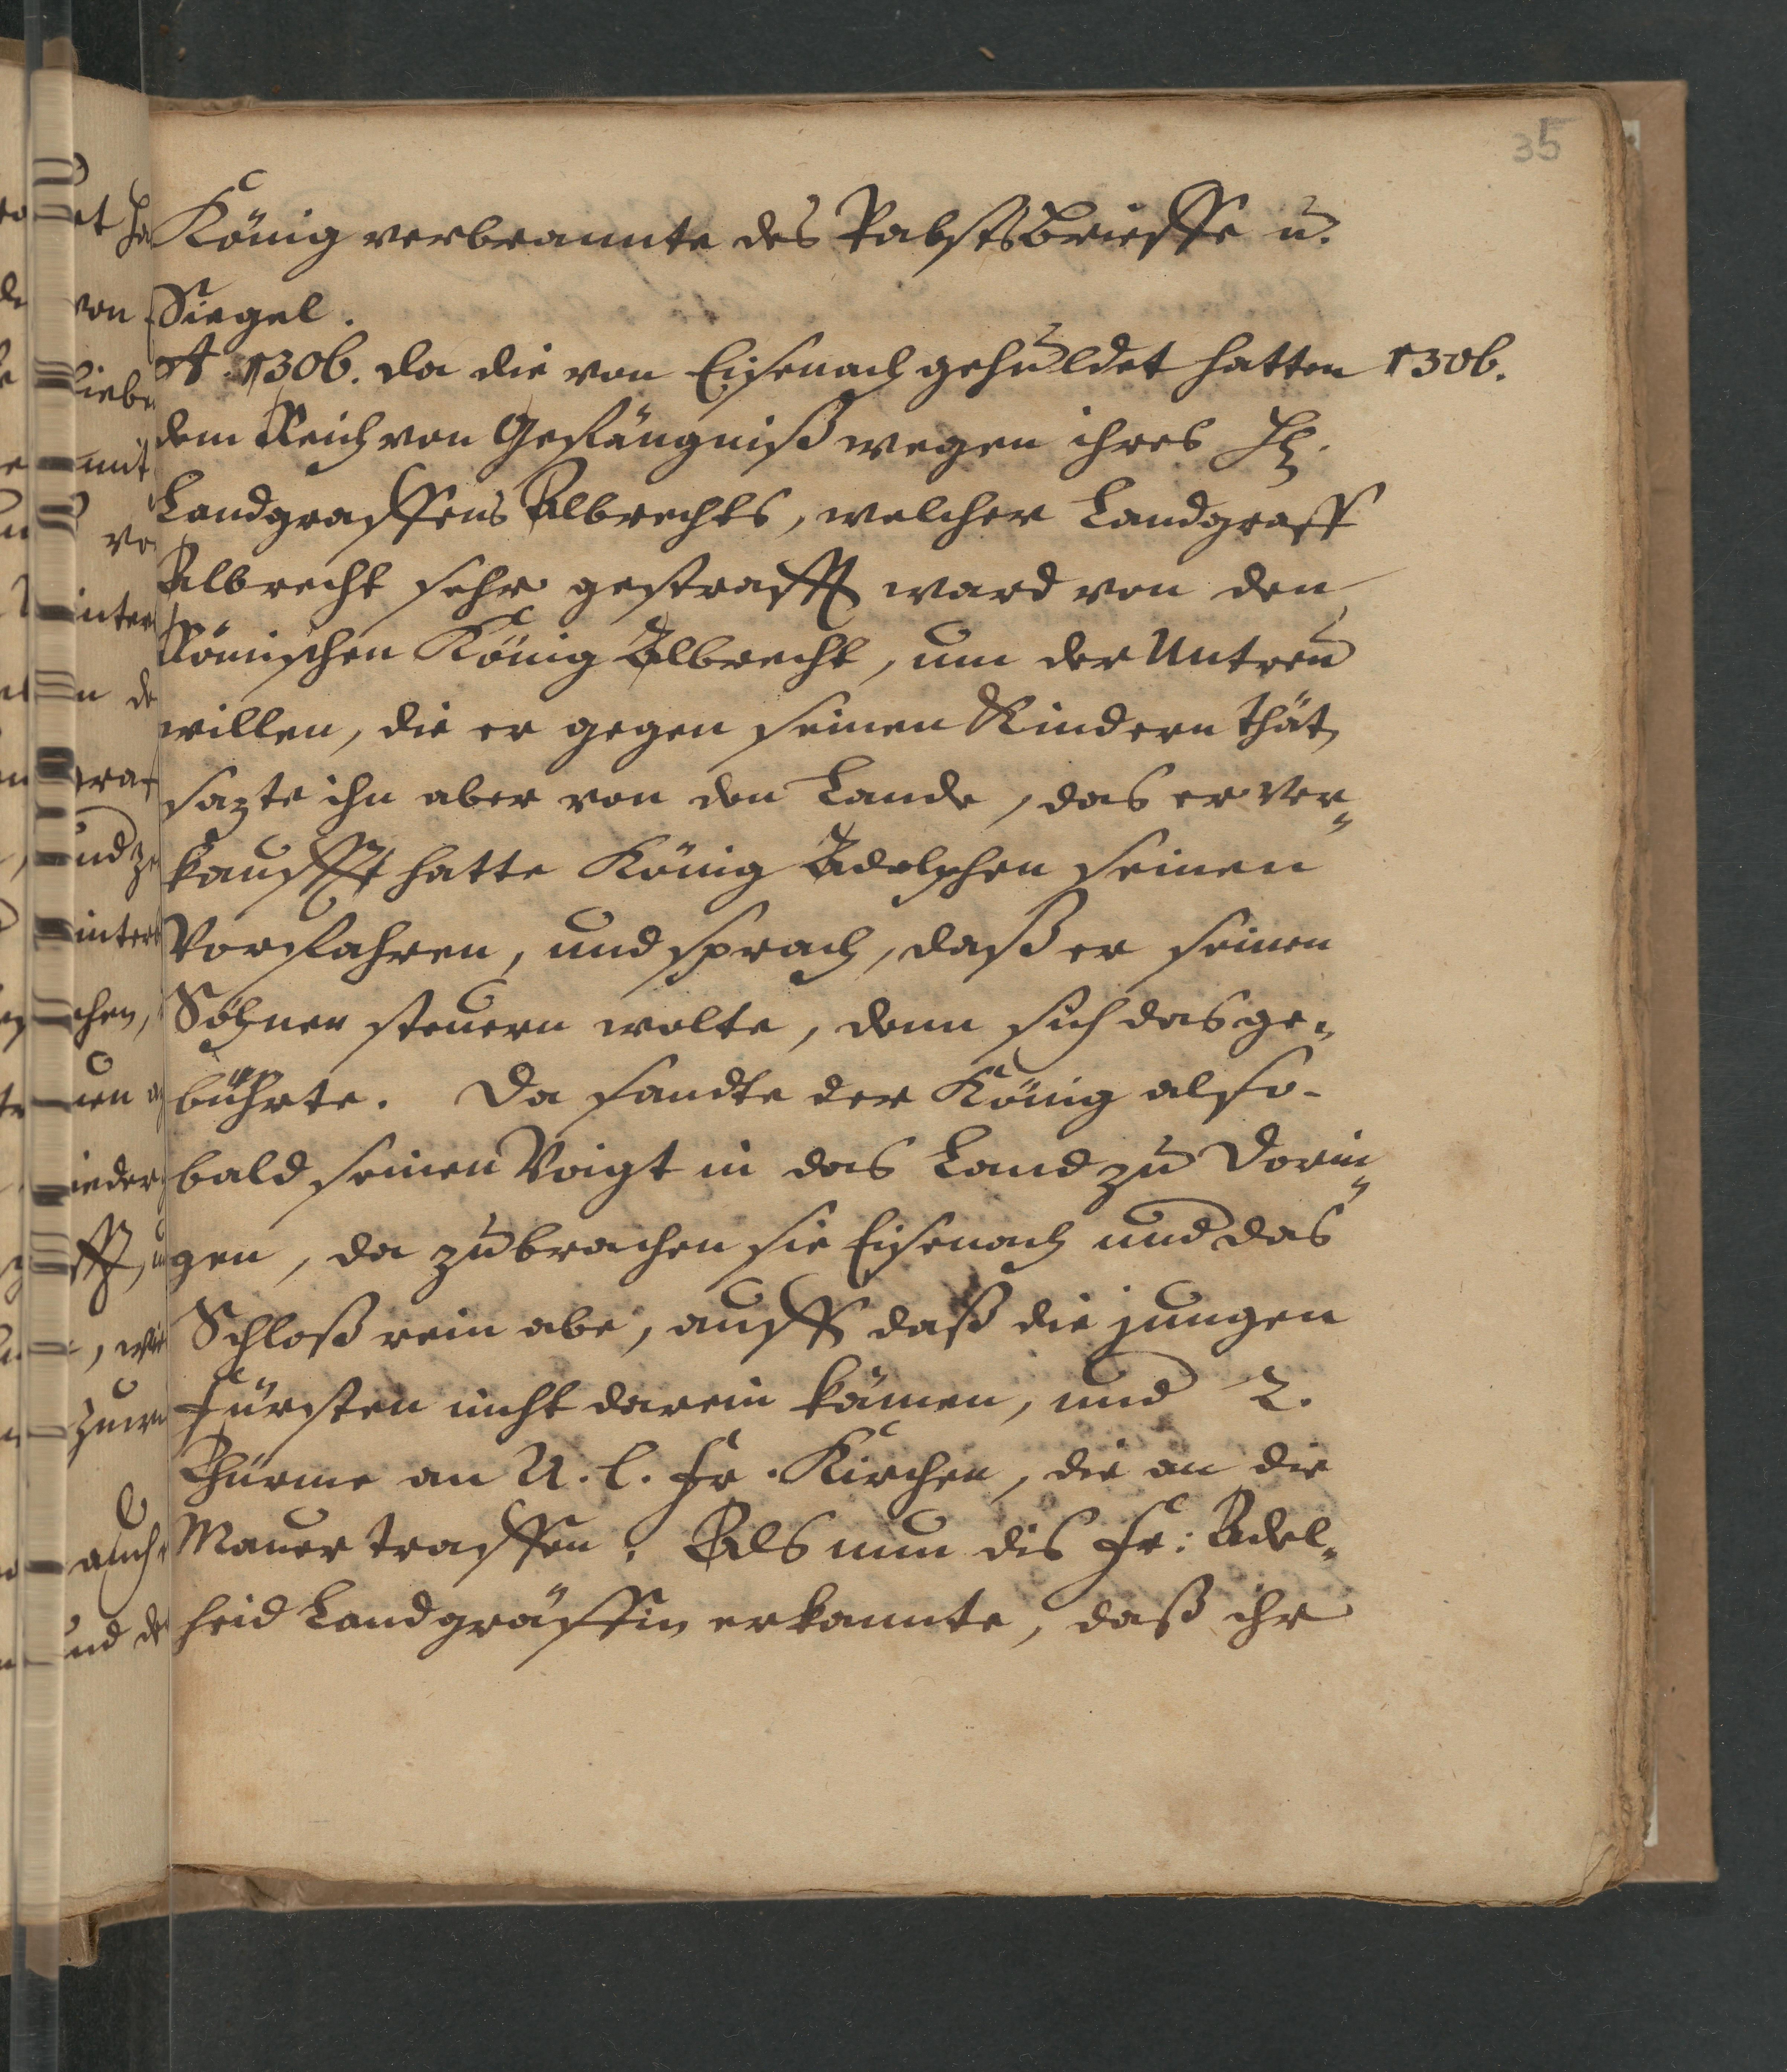 35
König verbrannte des Pabsts Brieffe u.
Siegel.
A. 1306. da die von Eisenach gehuldet hatten 1306.
dem Reich von Gefängniß wegen ihres H.
Landgraffens Albrechts, welcher Landgraff
Albrecht sehr gestrafft ward von den
Römischen König Albrecht, um der Untreu
willen, die er gegen seinen Kindern thät,
sazte ihn aber von den Lande, das er ver„
kaufft hatte König Adolphen seinen
Vorfahren, und sprach, daß er seinen
Söhnen steuern wolte, denn sich das ge„
bührte. Da sandte der König also-
bald seinen Voigt in das Land zu Dorin„
gen, da zubrachen sie Eisenach und das
Schloß rein abe, auff daß die jungen
Fürsten nicht darein kämen, und 2.
Thürme an U. l. Fr. Kirchen, die an die
Mauer traffen. Als nun dis Fr: Adel„
heid Landgräffin erkannte, daß ihr